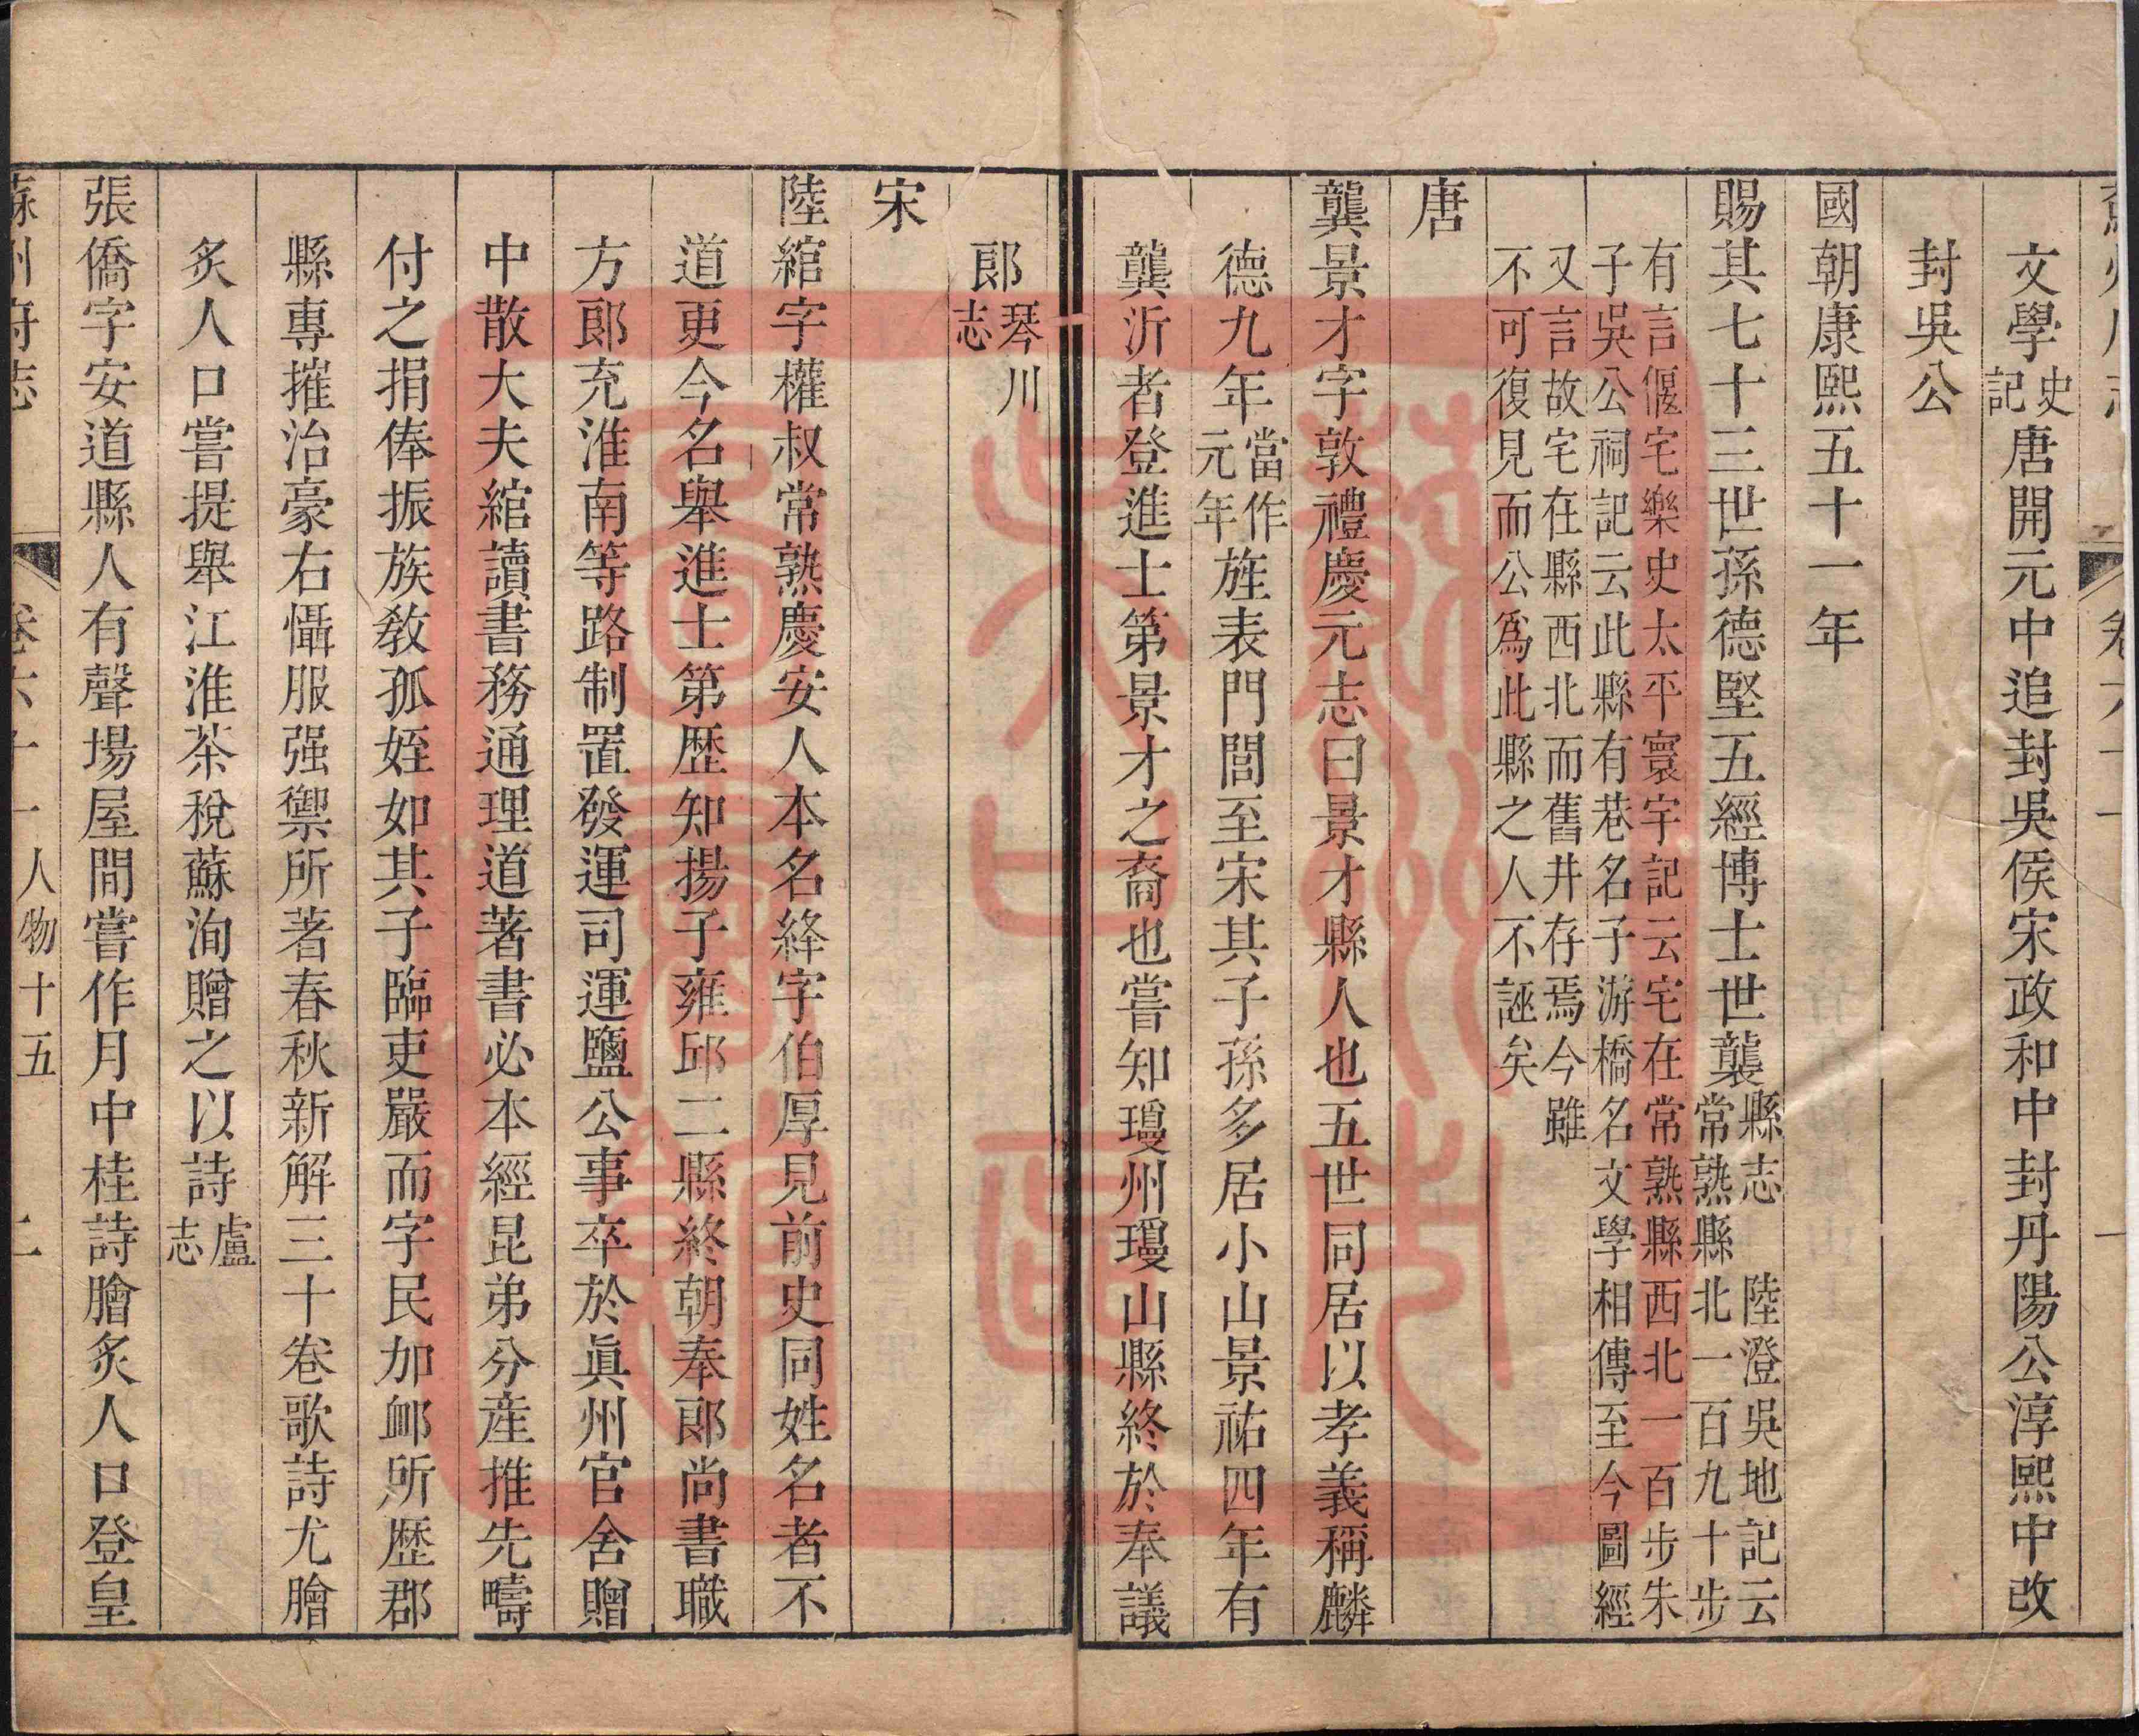 文學史記唐開元中追封吳侯宋政和中封丹陽公淳熙中改
封吳公
國朝康熙五十一年
賜其七十三世孫德堅五經博士世襲縣志 陸澄吳地記云常熟縣北一百九十步
有言偃宅樂史太平寰宇記云宅在常熟縣西北一百步朱
子吳公祠記云此縣有巷名子游橋名文學相傳至今圖經
又言故宅在縣西北而舊井存焉今雖
不可復見而公爲此縣之人不誣矣
唐
龔景才字敦禮慶元志曰景才縣人也五世同居以孝義稱麟
德九年當作元年旌表門閭至宋其子孫多居小山景祐四年有
龔沂者登進士第景才之裔也嘗知瓊州瓊山縣終於奉議
郎琴川志
宋
陸綰字權叔常熟慶安人本名絳字伯厚見前史同姓名者不
道更今名舉進士第歷知揚子雍邱二縣終朝奉郎尚書職
方郎充淮南等路制置發運司運鹽公事卒於眞州官舍贈
中散大夫綰讀書務通理道著書必本經昆弟分産推先疇
付之捐俸振族教孤姪如其子臨吏嚴而字民加衈所歷郡
縣專摧治豪右懾服强禦所著春秋新解三十卷歌詩尤膾
炙人口嘗提舉江淮茶稅蘇洵贈之以詩盧志
張僑字安道縣人有聲場屋間嘗作月中桂詩膾炙人口登皇
蘇州府志 卷六十一 人物十五 二